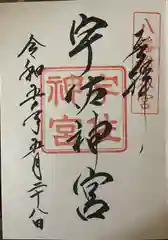 奉拝
宇佐神宮
宇佐
神宮
令和五年五月二十八日